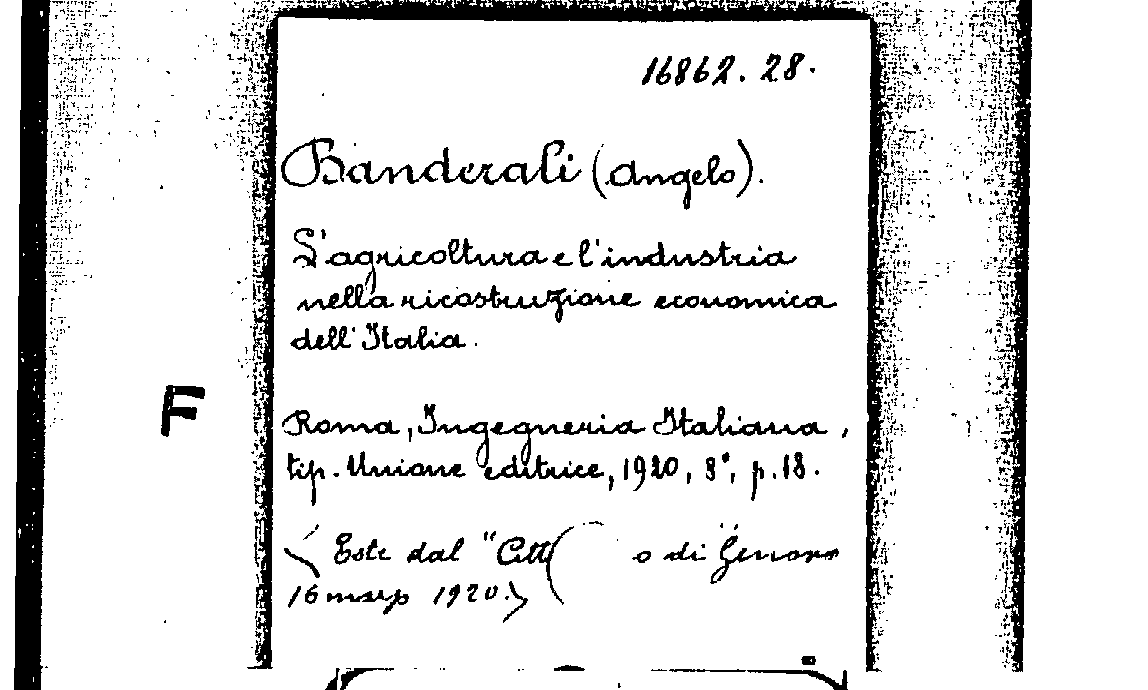 16862.28.
Banderali (Angelo).
L'agricoltura e l'industria
nella ricostruzione economica
dell'Italia.
F
Roma, Ingegneria Italiana,
tip. Unione editrice, 1920, 8°, p. 18.
Estr. dal "Citt o di Genova"
16 marzo 1920.>